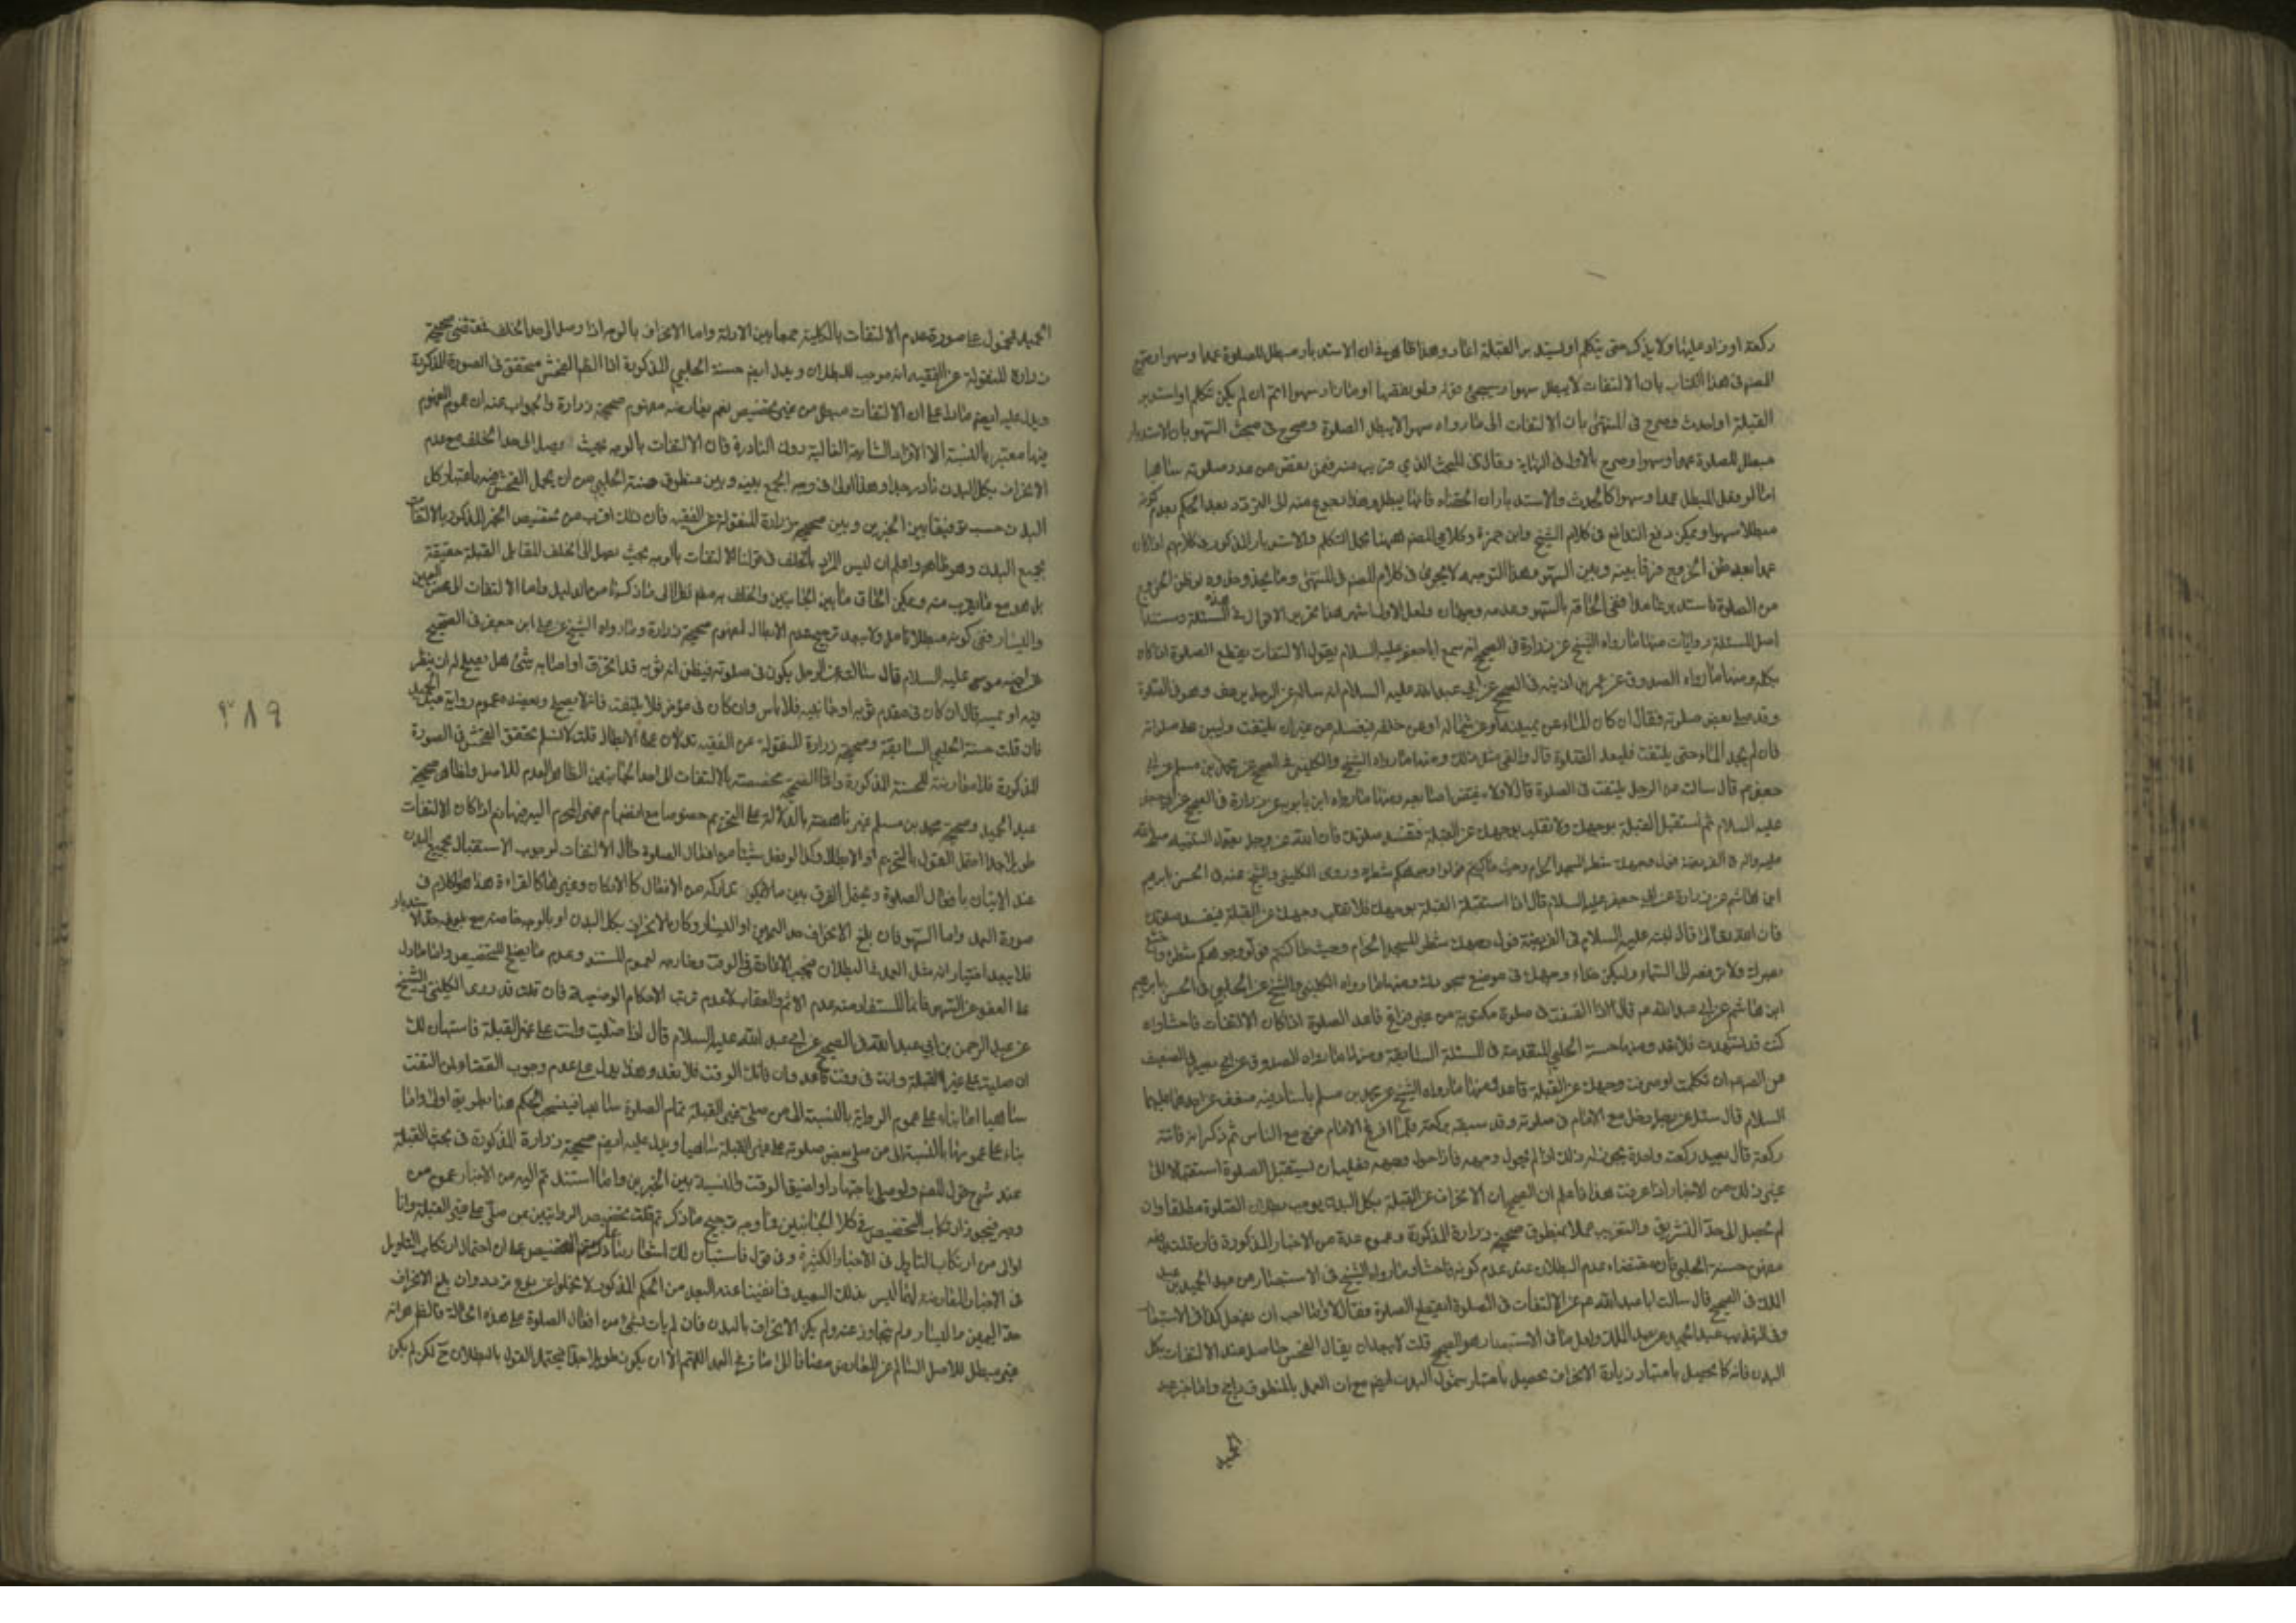 ركعة او زاد عليها ولا يذكر حتى يتكلم او يستدبر القبلة اعاد وهذا ظاهر في ان الاستدبار مبطل للصلوة عمدا وسهوا
المصنف في هذا الكتاب بان الالتفات لا يبطل سهوا وسيجيء قوله ولو نقصها او ما زاد سهوا اتم ان لم يكن تكلم او استدبر
القبلة او احدث وصرح في المنتهى بان الالتفات الى ما رواه سهوا لا يبطل الصلوة وصرح في مبحث السهو بان الاستدبار
مبطل للصلوة عمدا وسهوا وصرح بالاول في النهاية وقال في المبحث الذي قريب منه فيمن نقص من عدد صلوته ساهيا
اما لو فعل المبطل عمدا وسهوا كالحدث والاستدبار ان الحقناه فانها يبطل وهذا رجوع منه الى التردد بعد الحكم بعدم كونه
مبطلا سهوا ويمكن دفع التدافع في كلام الشيخ وابن حمزة وكلامي المصنف ههنا بحمل التكلم والاستدبار المذكور في كلامهم اذا كان
عمدا بعد ظن الخروج فرقا بينه وبين السهو وهذا التوجيه لا يجري في كلام المصنف في المنتهى وما يحذو حذوه لو ظن الخروج
من الصلوة فاستدبر عامدا ففي الحاقه بالسهو وعدمه وجهان ولعل الاول اشهر هذا تحرير الاقوال في هذه المسئلة ومستند
اصل المسئلة روايات منها ما رواه الشيخ عن زرارة في الصحيح انه سمع ابا جعفر عليه السلام يقول الالتفات يقطع الصلوة اذا كان
بكله ومنها ما رواه الصدوق عن عمر بن اذينة في الصحيح عن ابي عبد الله عليه السلام انه ساله عن الرجل يرعف وهو في الصلوة
وقد صلى بعض صلوته فقال ان كان الماء عن يمينه او عن شماله او عن خلفه فيغسله من غير ان يلتفت وليبن على صلوته
فان لم يجد الماء حتى يلتفت فليعد الصلوة قال والقي مثل ذلك ومنها ما رواه الشيخ والكليني في الصحيح عن محمد بن مسلم عن ابي
جعفر ع قال سالت عن الرجل يلتفت في الصلوة قال لا ولا ينقض اصابعه ومنها ما رواه ابن بابويه عن زرارة في الصحيح عن ابي جعفر
عليه السلام ثم استقبل القبلة بوجهك ولا تقلب بوجهك عن القبلة فتفسد صلوتك فان الله عز وجل يقول لنبيه صلى الله
عليه واله في الفريضة فول وجهك شطر المسجد الحرام وحيث ما كنتم فولوا وجوهكم شطره وروى الكليني والشيخ عنه في الحسن بابرهيم
ابن هاشم عن زرارة عن ابي جعفر عليه السلام قال اذا استقبلت القبلة بوجهك فلا تقلب وجهك عن القبلة فتفسد صلوتك
فان الله تعالى قال لنبيه عليه السلام في الفريضة فول وجهك شطر المسجد الحرام وحيث ما كنتم فولوا وجوهكم شطره واخشع
بصرك ولا ترفعه الى السماء وليكن حذاء وجهك في موضع سجودك ومنها ما رواه الكليني والشيخ عن الحلبي في الحسن بابرهيم
ابن هاشم عن ابي عبد الله ع قال اذا التفت في صلوة مكتوبة من غير فراغ فاعد الصلوة اذا كان الالتفات فاحشا وان
كنت قد تشهدت فلا تعد ومنها حسنة الحلبي المتقدمة في المسئلة السابقة ومنها ما رواه الصدوق عن ابي بصير في الضعيف
عن الصادق ان تكلمت او صرفت وجهك عن القبلة فاعد ومنها ما رواه الشيخ عن محمد بن مسلم باسناد فيه ضعف عن احدهما عليهما
السلام قال سئل عن رجل دخل مع الامام في صلوته وقد سبقه بركعة فلما فرغ الامام خرج مع الناس ثم ذكر انه فاتته
ركعة قال يعيد ركعة واحدة يجوز له ذلك اذا لم يحول وجهه فاذا حول وجهه فعليه ان يستقبل الصلوة استقبالا الى
غير ذلك من الاخبار اذا عرفت هذا فاعلم ان الصحيح ان الانحراف عن القبلة بكل البدن يوجب بطلان الصلوة مطلقا وان
لم يصل الى حد التشريق والتغريب عملا بمنطوق صحيحة زرارة المذكورة وعموم عدة من الاخبار المذكورة فان قلت
مفهوم حسنة الحلبي فان مقتضاه عدم البطلان عند عدم كونه فاحشا وما رواه الشيخ في الاستبصار عن عبد الحميد بن عبد
الملك في الصحيح قال سالت ابا عبد الله ع عن الالتفات في الصلوة ايقطع الصلوة فقال لا وما احب ان يفعل كذا في الاستبصار
وفي التهذيب عبد الحميد عن عبد الملك ولعل ما في الاستبصار هو الصحيح قلت لا يبعد ان يقال الفحش حاصل عند الالتفات بكل
البدن فانه كما يحصل باعتبار زيادة الانحراف يحصل باعتبار شمول البدن ايضا مع ان العمل بالمنطوق راجح واما خبر عبد
الحميد
الحميد فمحمول على صورة عدم الالتفات بالكلية جمعا بين الادلة واما الانحراف بالوجه اذا وصل الى حد الخلف فمقتضى صحيحة
زرارة المنقولة عن الفقيه انه موجب للبطلان ويدل ايضا حسنة الحلبي المذكورة اذ الظاهر الفحش متحقق في الصورة المذكورة
ويدل عليه ايضا ما دل على ان الالتفات مبطل من غير تخصيص نعم يعارضه مفهوم صحيحة زرارة والجواب عنه ان عموم المفهوم
فيها معتبر بالنسبة الى الافراد الشايعة الغالبة دون النادرة فان الالتفات بالوجه بحيث يصل الى حد الخلف مع عدم
الانحراف بكل البدن نادر جدا وهذا اولى في وجه الجمع بينه وبين منطوق حسنة الحلبي من ان يحمل الفحش فيه باعتبار كل
البدن حسب توفيقا بين الخبرين وبين صحيحة زرارة المنقولة عن الفقيه فان ذلك اقرب من تخصيص الخبر المذكور بالالتفات
بجميع البدن وهو ظاهر واعلم ان ليس المراد بالخلف في قولنا الالتفات بالوجه بحيث يصل الى الخلف المقابل القبلة حقيقة
بل هو مع ما يقرب منه ويمكن الحاق ما بين الجانبين والخلف به نظرا الى ما ذكرنا من الدليل واما الالتفات الى محض اليمين
واليسار ففي كونه مبطلا تامل ولا يبعد ترجيح عدم الابطال لمفهوم صحيحة زرارة وما رواه الشيخ عن علي ابن جعفر في الصحيح
عن اخيه موسى عليه السلام قال سالته عن الرجل يكون في صلوته فيظن انه ثوبه قد انخرق او اصابه شئ هل يصلح له ان ينظر
فيه او يمسه قال ان كان في مقدم ثوبه او جانبيه فلا باس وان كان في مؤخره فلا يلتفت فانه لا يصلح ويعضده عموم رواية عبد الحميد
فان قلت حسنة الحلبي السابقة وصحيحة زرارة المنقولة عن الفقيه تدلان على الابطال قلت لا نسلم تحقق الفحش في الصورة
المذكورة فلا معارضة للحسنة المذكورة واما الصحيحة مخصصة بالالتفات الى احد الجانبين الظاهر العدم للاصل ولظاهر صحيحة
عبد الحميد وصحيحة محمد بن مسلم غير ناهضة بالدلالة على التحريم خصوصا مع انضمام غير المحرم اليه فيها نعم اذا كان الالتفات
طويلا جدا احتمل القول بالتحريم او الابطال وكذا لو فعل شيئا من افعال الصلوة حال الالتفات لوجوب الاستقبال بجميع البدن
عند الاتيان بافعال الصلوة ويحتمل الفرق بين ما يمكن تداركه من الافعال كالاركان وغيرها كالقراءة هذا هو الكلام في
صورة العمد واما السهو فان بلغ الانحراف حد اليمين او اليسار وكان الانحراف بكل البدن او بالوجه خاصة مع بلوغه حد الاستدبار
فلا يبعد اختيار انه مثل العمد في البطلان فيجب الاعادة في الوقت وخارجه لعموم المستند وعدم ما يصلح للتخصيص واما ما دل
على العفو عن السهو فانما المستفاد منه عدم الاثم والعقاب لا عدم ترتب الاحكام الوضعية فان قلت قد روى الكليني والشيخ
عن عبد الرحمن بن ابي عبد الله في الصحيح عن ابي عبد الله عليه السلام قال اذا صليت وانت على غير القبلة فاستبان لك
ان صليت على غير القبلة وانت في وقت فاعد وان فاتك الوقت فلا تعد وهذا يدل على عدم وجوب القضاء لمن التفت
ساهيا اما بناء على عموم الرواية بالنسبة الى من صلى بغير القبلة تمام الصلوة ساهيا فينسحب الحكم هنا بطريق اولى واما
بناء على عمومها بالنسبة الى من صلى بعض صلوته على غير القبلة ساهيا ويدل عليه ايضا صحيحة زرارة المذكورة في بحث القبلة
عند شرح قول المصنف ولو صلى باجتهاد او لضيق الوقت والنسبة بين الخبرين وما استند ثم اليه من الاخبار عموم من
وجه فيجوز ارتكاب التخصيص في كلا الجانبين فما وجه ترجيح ما ذكرتم قلت تخصيص الروايتين عن صلى على غير القبلة واما
اولى من ارتكاب التاويل في الاخبار الكثيرة وفي قوله فاستبان لك اشعار بما ذكرتم من التخصيص على ان احتمال ارتكاب التاويل
في الاخبار المعارضة لها ليس بذلك البعيد فانفينا عند البعد من الحكم المذكور لا يخلوا عن نوع تردد وان بلغ الانحراف
حد اليمين واليسار ولم يتجاوز عنه ولم يكن الانحراف بالبدن فان لم يات بشئ من افعال الصلوة على هذه الحالة فالظاهر انه
غير مبطل للاصل السالم عن المعارض مضافا الى ما مر في العمد اللهم الا ان يكون طويلا جدا فيحتمل القول بالبطلان ح لكن لم يكن
٣٨٩